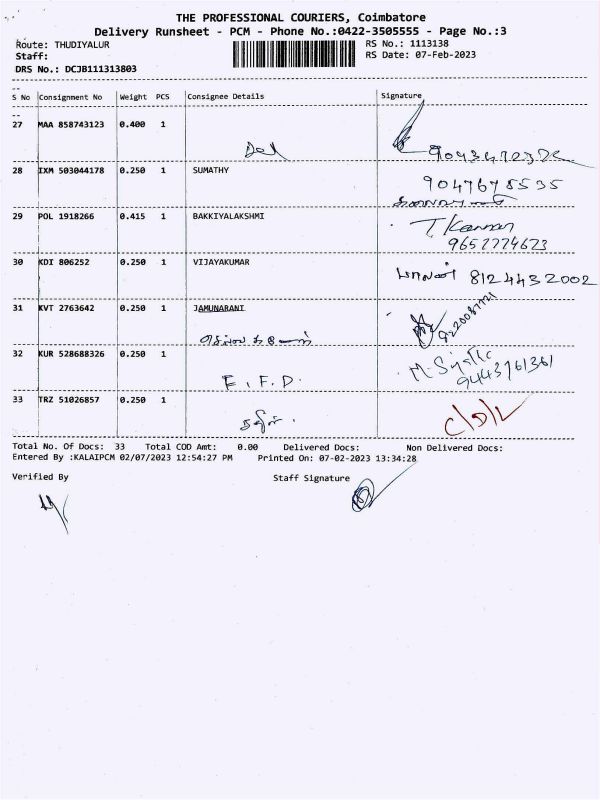 THE PROFESSIONAL COURIERS, Coimbatore
Delivery Runsheet - PCM - Phone No.:0422-3505555 - Page No.:3
Route: THUDIYALUR RS No.: 1113138
Staff: RS Date: 07-Feb-2023
DRS No.: DCJB111313803
S No Consignment No Weight PCS Consignee Details Signature
27 MAA 858743123 0.400 1
28 IXM 503044178 0.250 1 SUMATHY 9047678535
29 POL 1918266 0.415 1 BAKKIYALAKSHMI T. Kannan
9652774623
30 KDI 806252 0.250 1 VIJAYAKUMAR 8124432002
31 KVT 2763642 0.250 1 JAMUNARANI
32 KUR 528688326 0.250 1
E.F.D. 9443761361
33 TRZ 51026857 0.250 1
Total No. Of Docs: 33 Total COD Amt: 0.00 Delivered Docs: Non Delivered Docs:
Entered By :KALAIPCM 02/07/2023 12:54:27 PM Printed On: 07-02-2023 13:34:28
Verified By Staff Signature